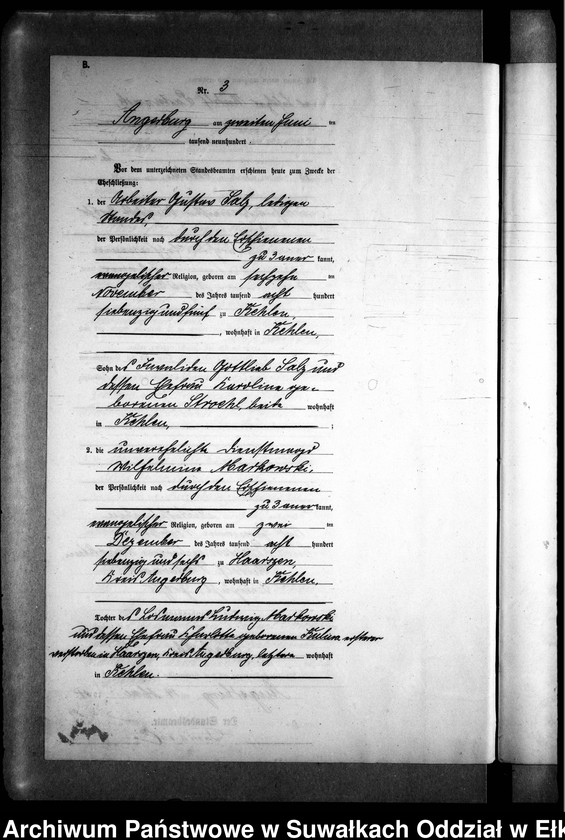 B.
Nr. 3
Angerburg am zweiten Juni ten
tausend neunhundert .
Vor dem unterzeichneten Standesbeamten erschienen heute zum Zwecke der
Eheschließung:
1. der Arbeiter Gustav Salz, ledigen
Standes,
der Persönlichkeit nach durch den Erschienenen
zu 3 aner kannt,
evangelischer Religion, geboren am sechzehn ten
November des Jahres tausend acht hundert
siebenzig und fünf zu Kehlen,
, wohnhaft in Kehlen,
Sohn des Invaliden Gottlieb Salz und
dessen Ehefrau Karoline ge-
borenen Stroehl, beide wohnhaft
in Kehlen, ;
2. die unverehelichte Dienstmagd
Wilhelmine Markowski,
der Persönlichkeit nach durch den Erschienenen
zu 3 aner kannt,
evangelischer Religion, geboren am zwei ten
Dezember des Jahres tausend acht hundert
siebenzig und sechs zu Haarszen,
Kreis Angerburg, wohnhaft in Kehlen,
Tochter des Losmanns Ludwig Markowski
und dessen Ehefrau Charlotte geborenen ersterer
verstorben in Haarszen, Kreis Angerburg, letztere wohnhaft
in Kehlen.
Archiwum Państwowe w Suwałkach Oddział w Ełk